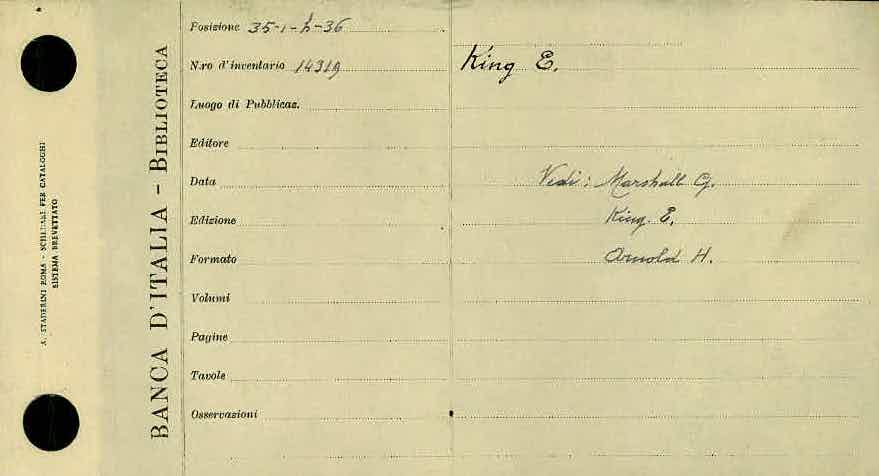 A. STADERINI ROMA - SCHEDARI PER CATALOGHI
SISTEMA BREVETTATO
BANCA D'ITALIA - BIBLIOTECA
Posizione 35-1-h-36
N.ro d'inventario 14319
Luogo di Pubblicaz.
Editore
Data
Edizione
Formato
Volumi
Pagine
Tavole
Osservazioni
King E.
Vedi: Marshall G.
King. E.
Arnold H.